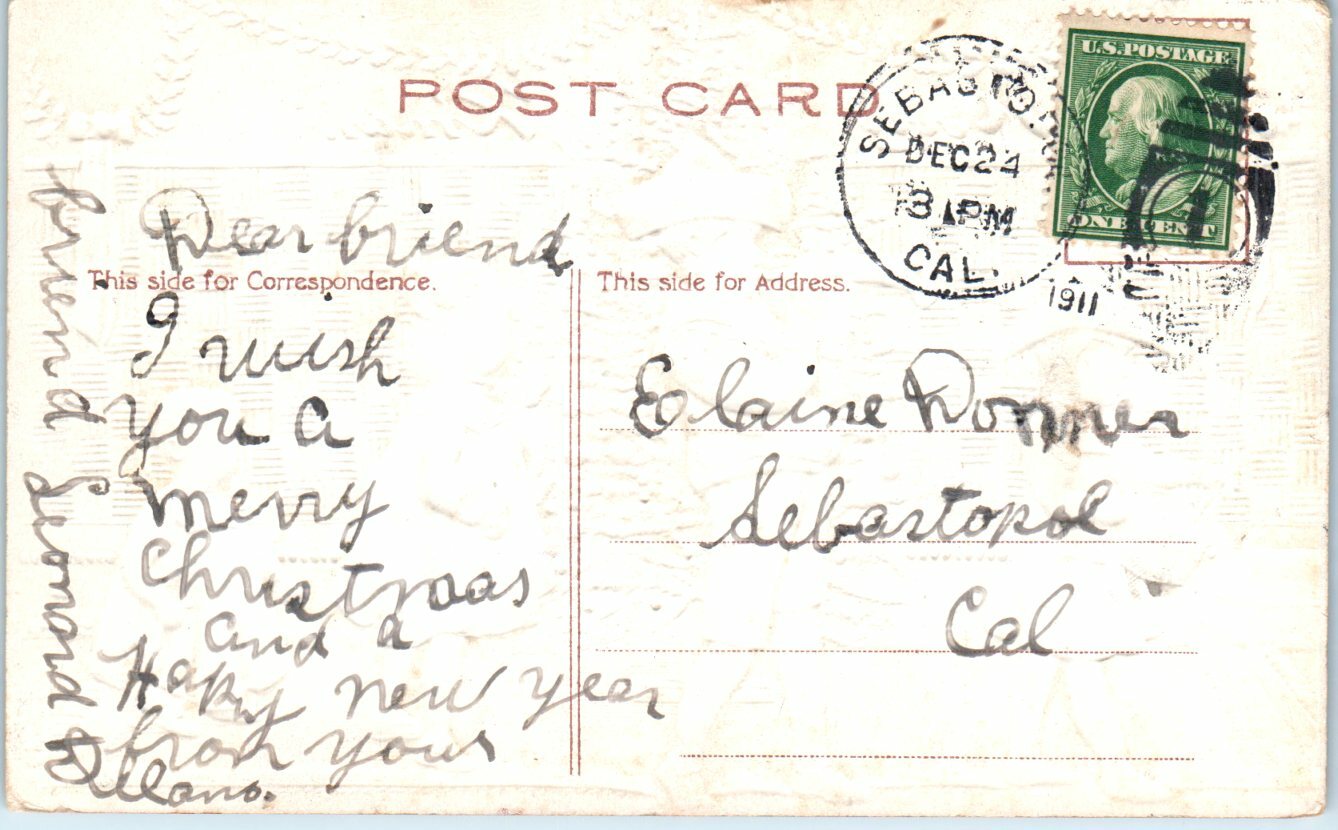 POST CARD
SEBASTO
DEC 24
3 PM
CAL.
1911
U.S. POSTAGE
ONE CENT
1
Dear friend
This side for Correspondence.
I wish
you a
merry
Christmas
and a
Happy new year
from your
friend Leonard
This side for Address.
Elaine Donner
Sebastopol
Cal